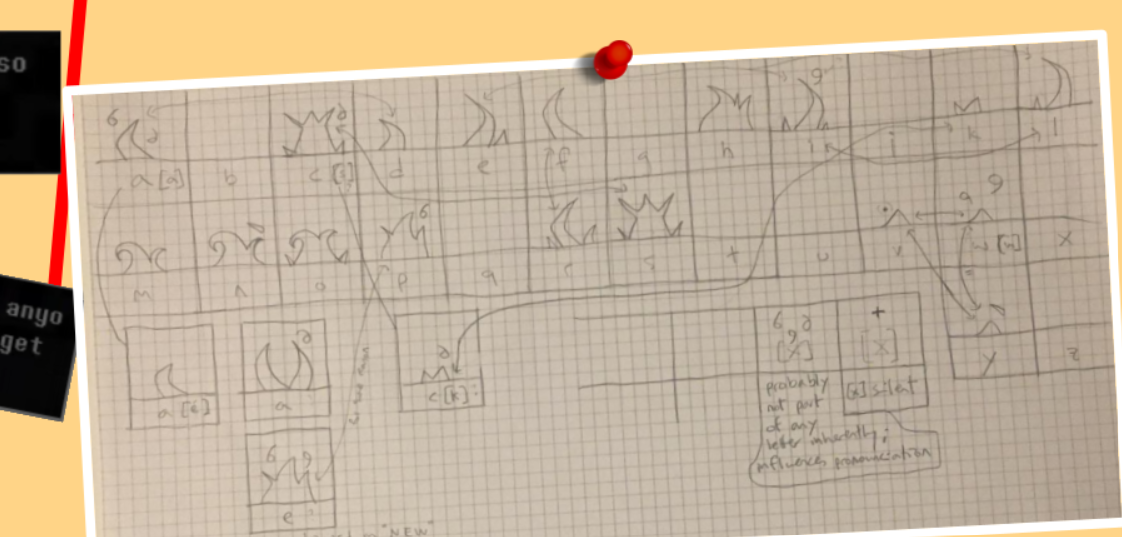 so
anyo
get
a [a] b c [s] d e f g h i j k l
m n o p q r s t u v w [w] x
y z
a
c [k]
e
[x]
+
[x]
probably
not part
of any
letter inherently;
influences pronunciation
[x] silent
"NEW"